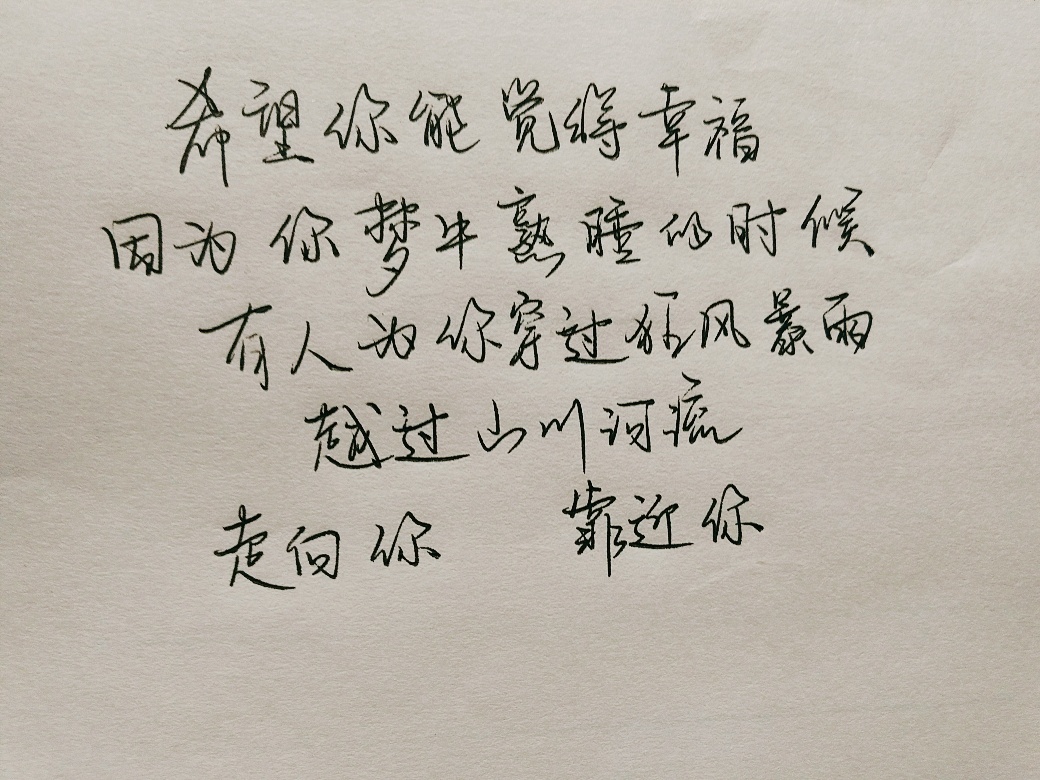 希望你能觉得幸福
因为你梦中熟睡的时候
有人为你穿过狂风暴雨
越过山川河流
走向你 靠近你